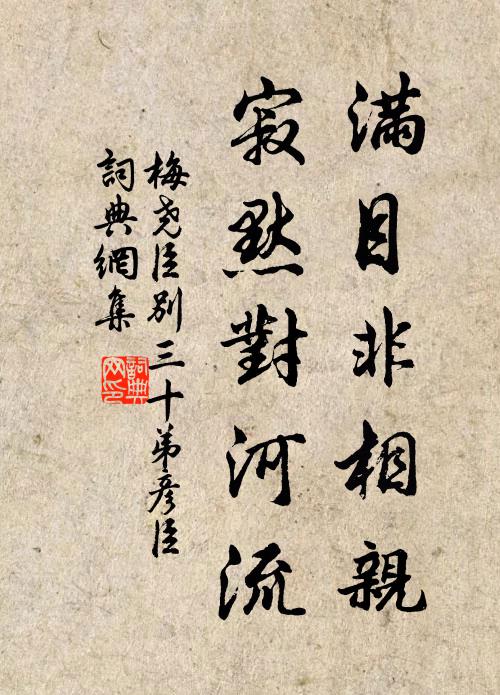 滿目非相親
寂默對河流
梅堯臣別三十弟彦臣
詞典網集
詞典網印